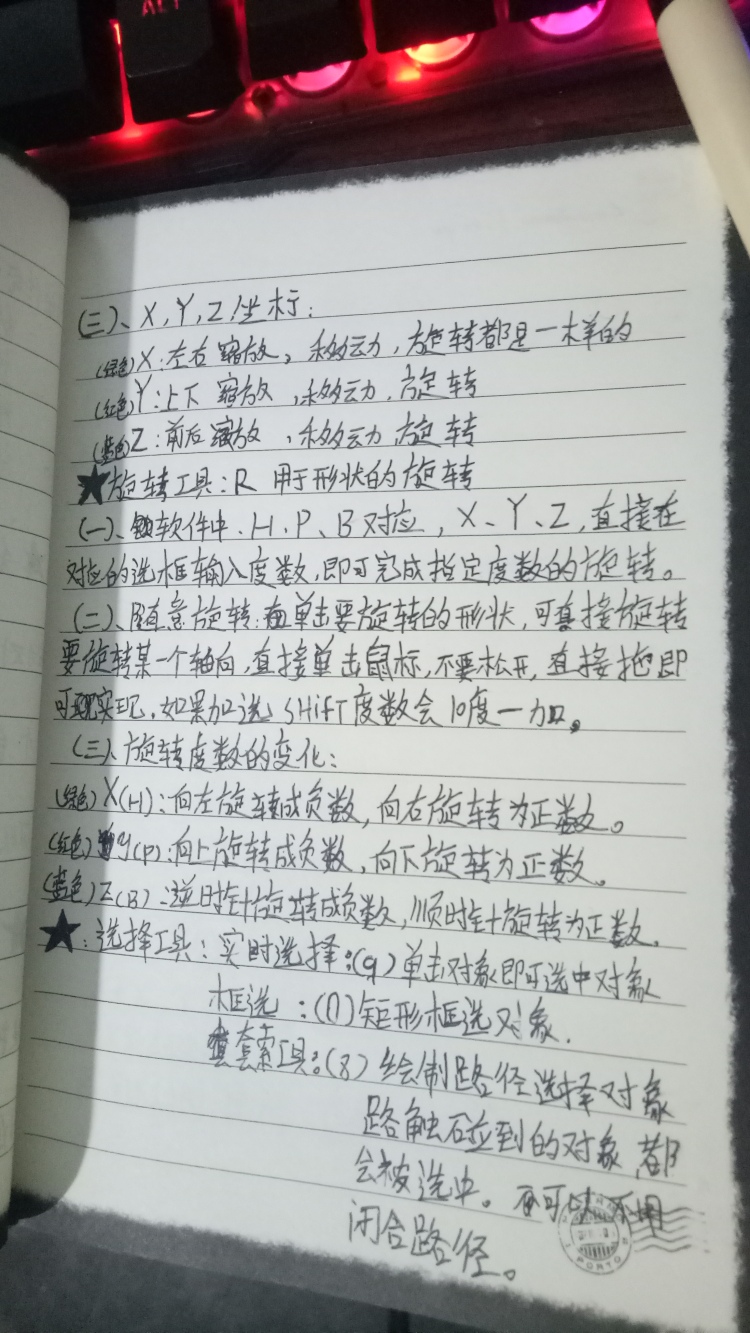 ALT
(三)、X,Y,Z坐标:
(绿色)X:左右缩放,移动,旋转都是一样的
(红色)Y:上下缩放,移动,旋转
(蓝色)Z:前后缩放,移动,旋转
★旋转工具:R 用于形状的旋转
(一)、软件中.H.P、B对应,X、Y、Z,直接在
对应的选框输入度数,即可完成指定度数的旋转。
(二)、随意旋转:单击要旋转的形状,可直接旋转
要旋转某一个轴向,直接单击鼠标,不要松开,直接拖即
可实现.如果加选SHifT度数会10度一加。
(三)、旋转度数的变化:
(绿色)X(H):向左旋转成负数,向右旋转为正数。
(红色)y(p):向上旋转成负数,向下旋转为正数。
(蓝色)Z(B):逆时针旋转成负数,顺时针旋转为正数.
★:选择工具:实时选择:(9)单击对象即可选中对象
框选:(0)矩形框选对象.
套索工具:(8)绘制路径选择对象
路触碰到的对象,都
会被选中。可以不用
闭合路径。
PORTO